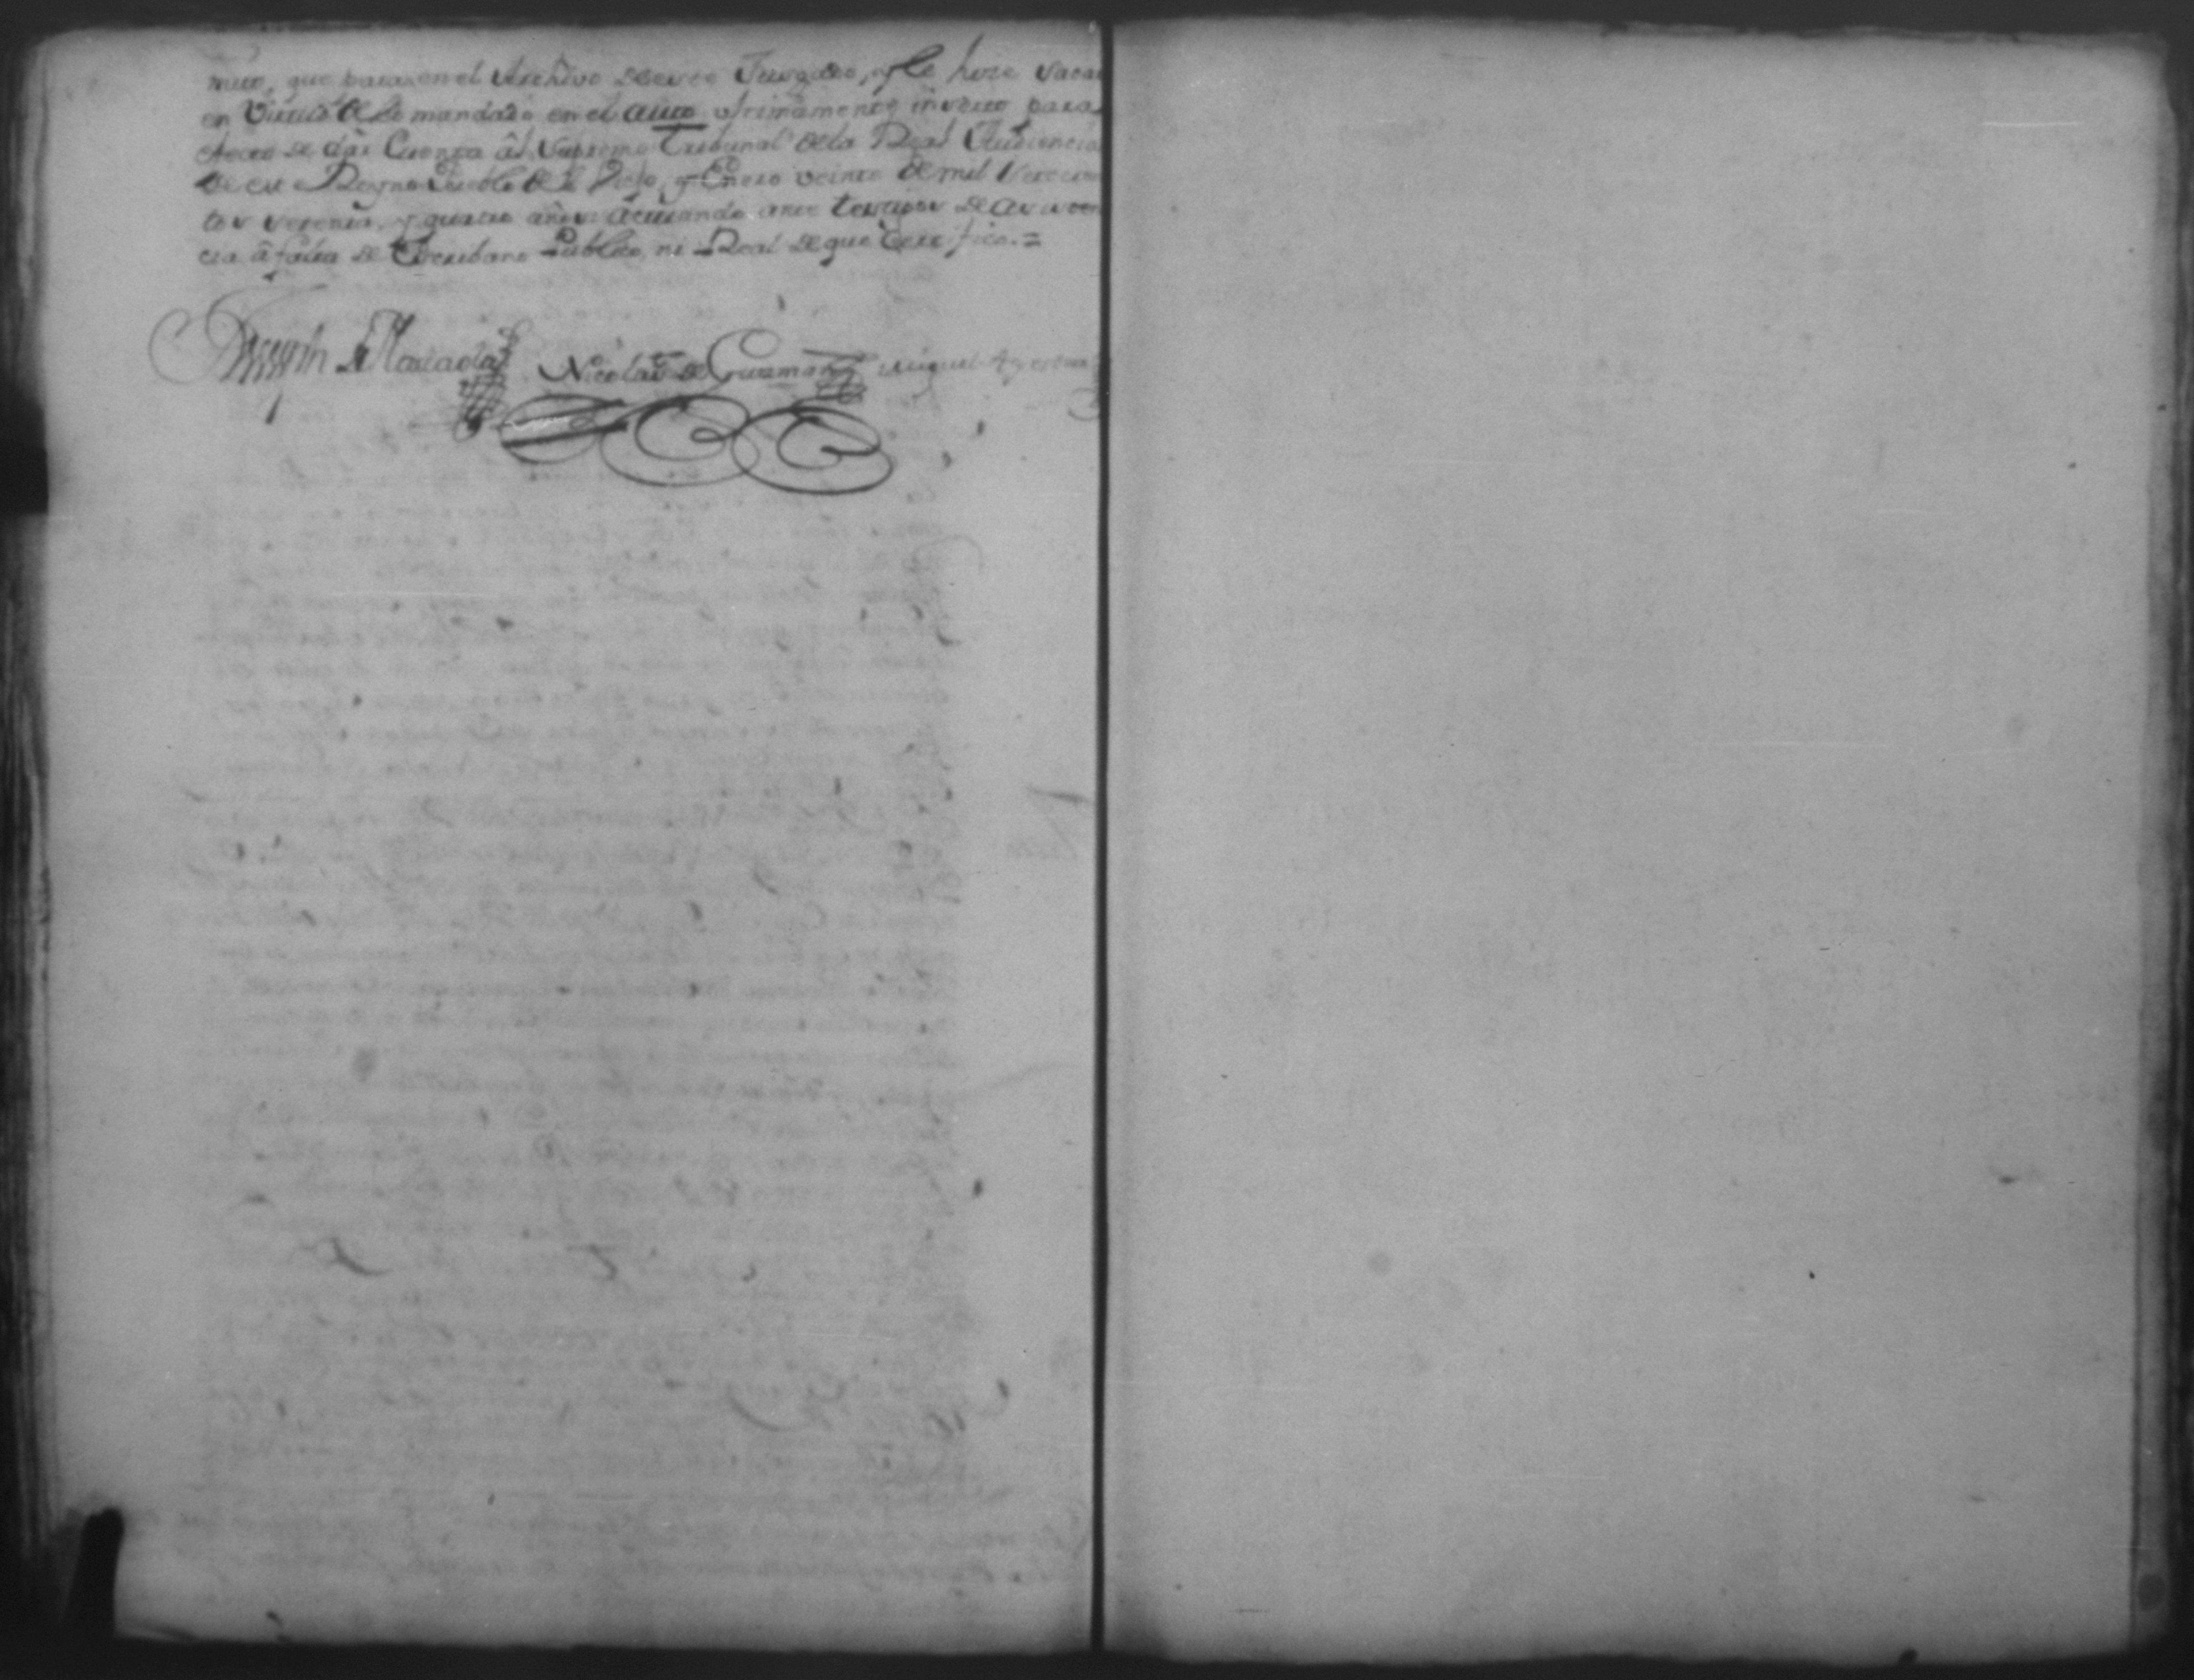 que para en el Archivo de este Juzgado, y le hize sacar
en Virtud de lo mandado en el auto ultimamente inserto para
efecto de dar Cuenta al Supremo Tribunal de la Real Audiencia
de este Reyno Pueblo de el Viejo, y Enero veinte de mil setecien
tos setenta, y quatro años: actuando ante testigos de asisten
cia â falta de Escribano Publico, ni Real de que Certifico.=
Joseph de Nicolas de Guzman Miguel